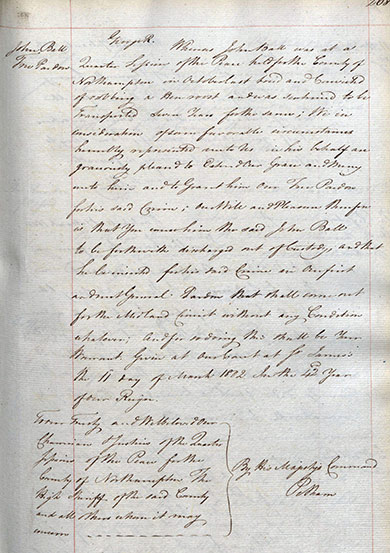 George R. Whereas John Ball was at a
John Ball
Free Pardon
Quarter Session of the Peace held for the County of
Northampton in October last tried and Convicted
of robbing a Hen roost and was sentenced to be
Transported Seven Years for the same; We in
consideration of some favourable circumstances
humbly represented unto Us in his behalf are
graciously pleased to Extend Our Grace and Mercy
unto him and to Grant him Our Free Pardon
for his said Crime; Our Will and Pleasure therefore
is that You cause him the said John Ball
to be forthwith discharged out of Custody, and that
he be inserted for his said Crime in Our first
and next General Pardon that shall come out
for the Midland Circuit without any Condition
whatsoever; And for so doing this shall be Your
Warrant. Given at Our Court at St. James's
the 11 day of March 1802 In the 42d Year
of Our Reign.
To our Trusty and Welbeloved Our
Chairman & Justices of the Quarter
Sessions of the Peace for the
County of Northampton The
High Sheriff of the said County
and all others whom it may
concern
By His Majestys Command
Pelham